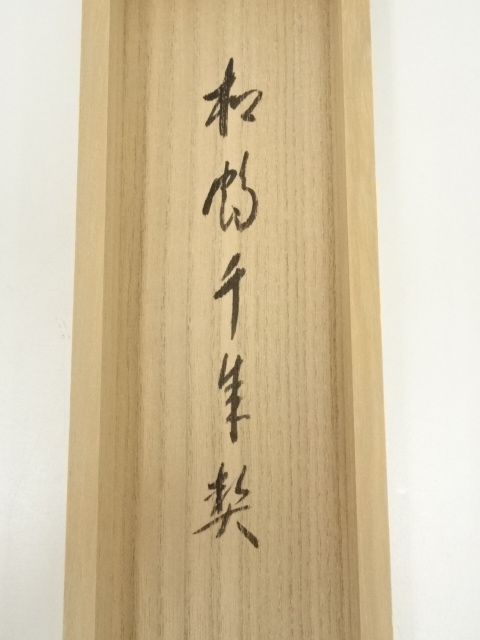 松鶴千年契